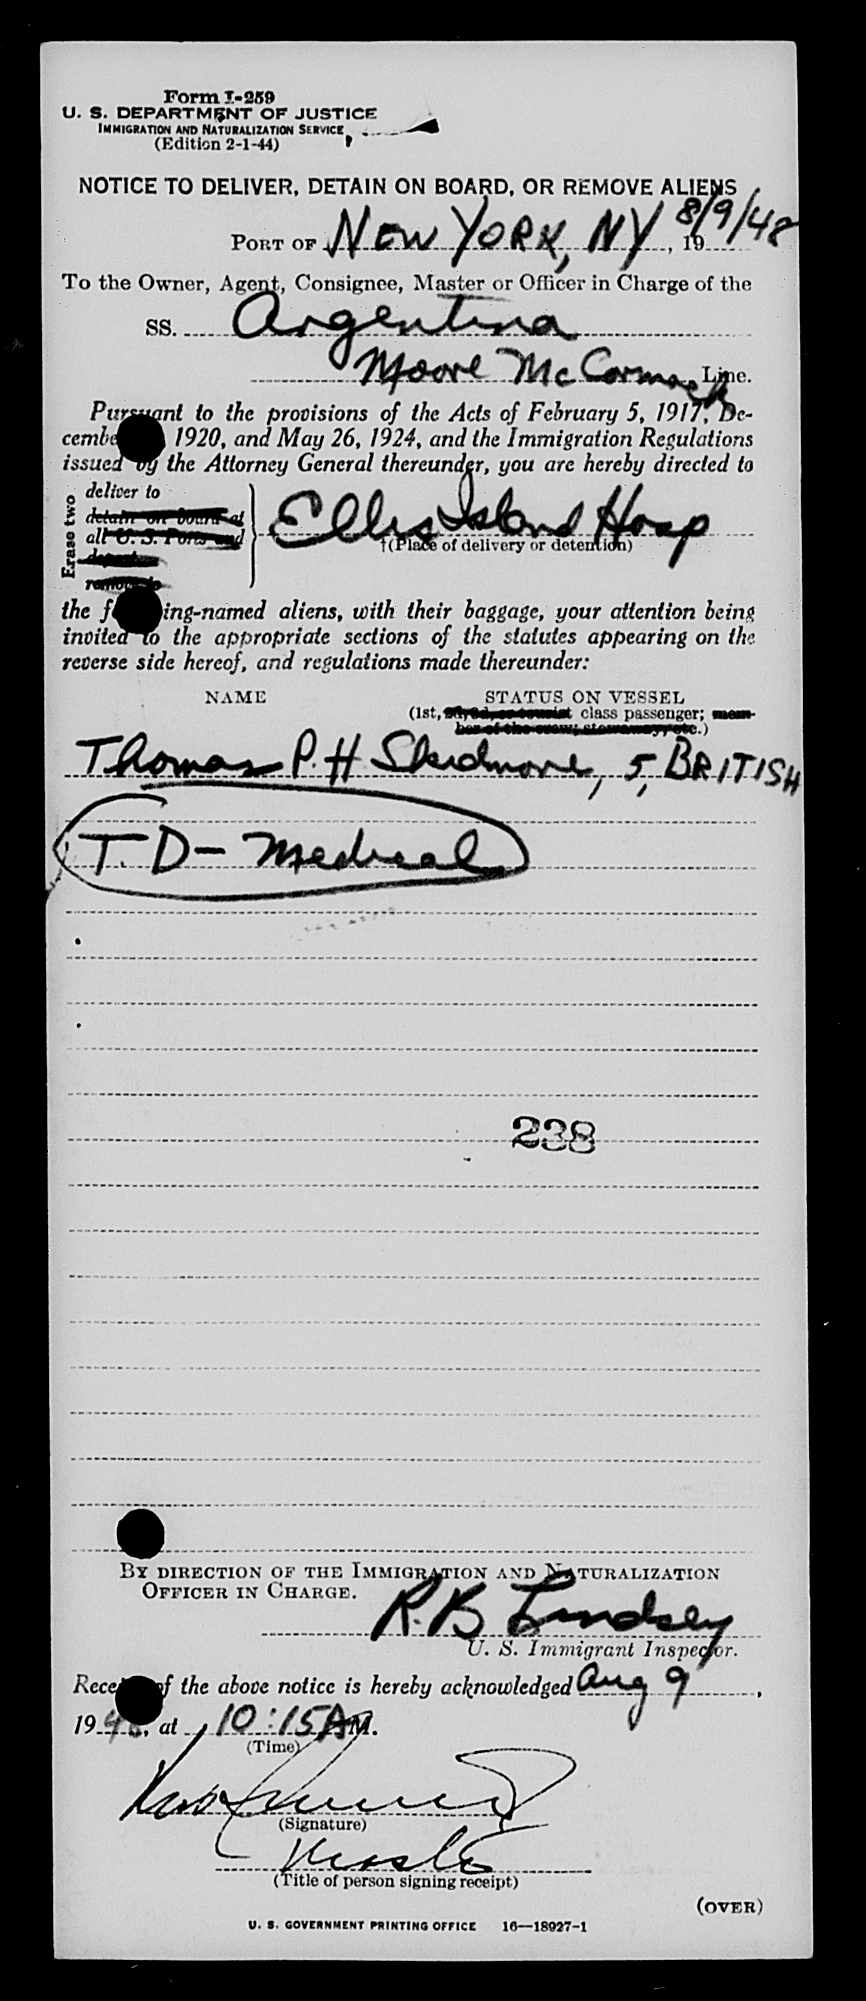 Form I-259
U. S. DEPARTMENT OF JUSTICE
IMMIGRATION AND NATURALIZATION SERVICE
(Edition 2-1-44)
NOTICE TO DELIVER, DETAIN ON BOARD, OR REMOVE ALIENS
PORT OF New York, NY, 19 8/9/48
To the Owner, Agent, Consignee, Master or Officer in Charge of the
SS. Argentina
Moore McCormack Line.
Pursuant to the provisions of the Acts of February 5, 1917, De-
cember 1920, and May 26, 1924, and the Immigration Regulations
issued by the Attorney General thereunder, you are hereby directed to
Erase two
deliver to
detain on board at
all U. S. Ports and
deport
remove to
Ellis Island Hosp
†(Place of delivery or detention)
the following-named aliens, with their baggage, your attention being
invited to the appropriate sections of the statutes appearing on the
reverse side hereof, and regulations made thereunder:
NAME STATUS ON VESSEL
(1st, 2d, 3d, or tourist class passenger; mem-
ber of the crew; stowaway, etc.)
Thomas P. H Skidmore, 5, BRITISH
T. D - Medical
238
BY DIRECTION OF THE IMMIGRATION AND NATURALIZATION
OFFICER IN CHARGE.
R. B Lindsey
U. S. Immigrant Inspector.
Receipt of the above notice is hereby acknowledged Aug 9,
1948, at 10:15 AM.
(Time)
(Signature)
Master
(Title of person signing receipt)
(OVER)
U. S. GOVERNMENT PRINTING OFFICE 16—18927-1